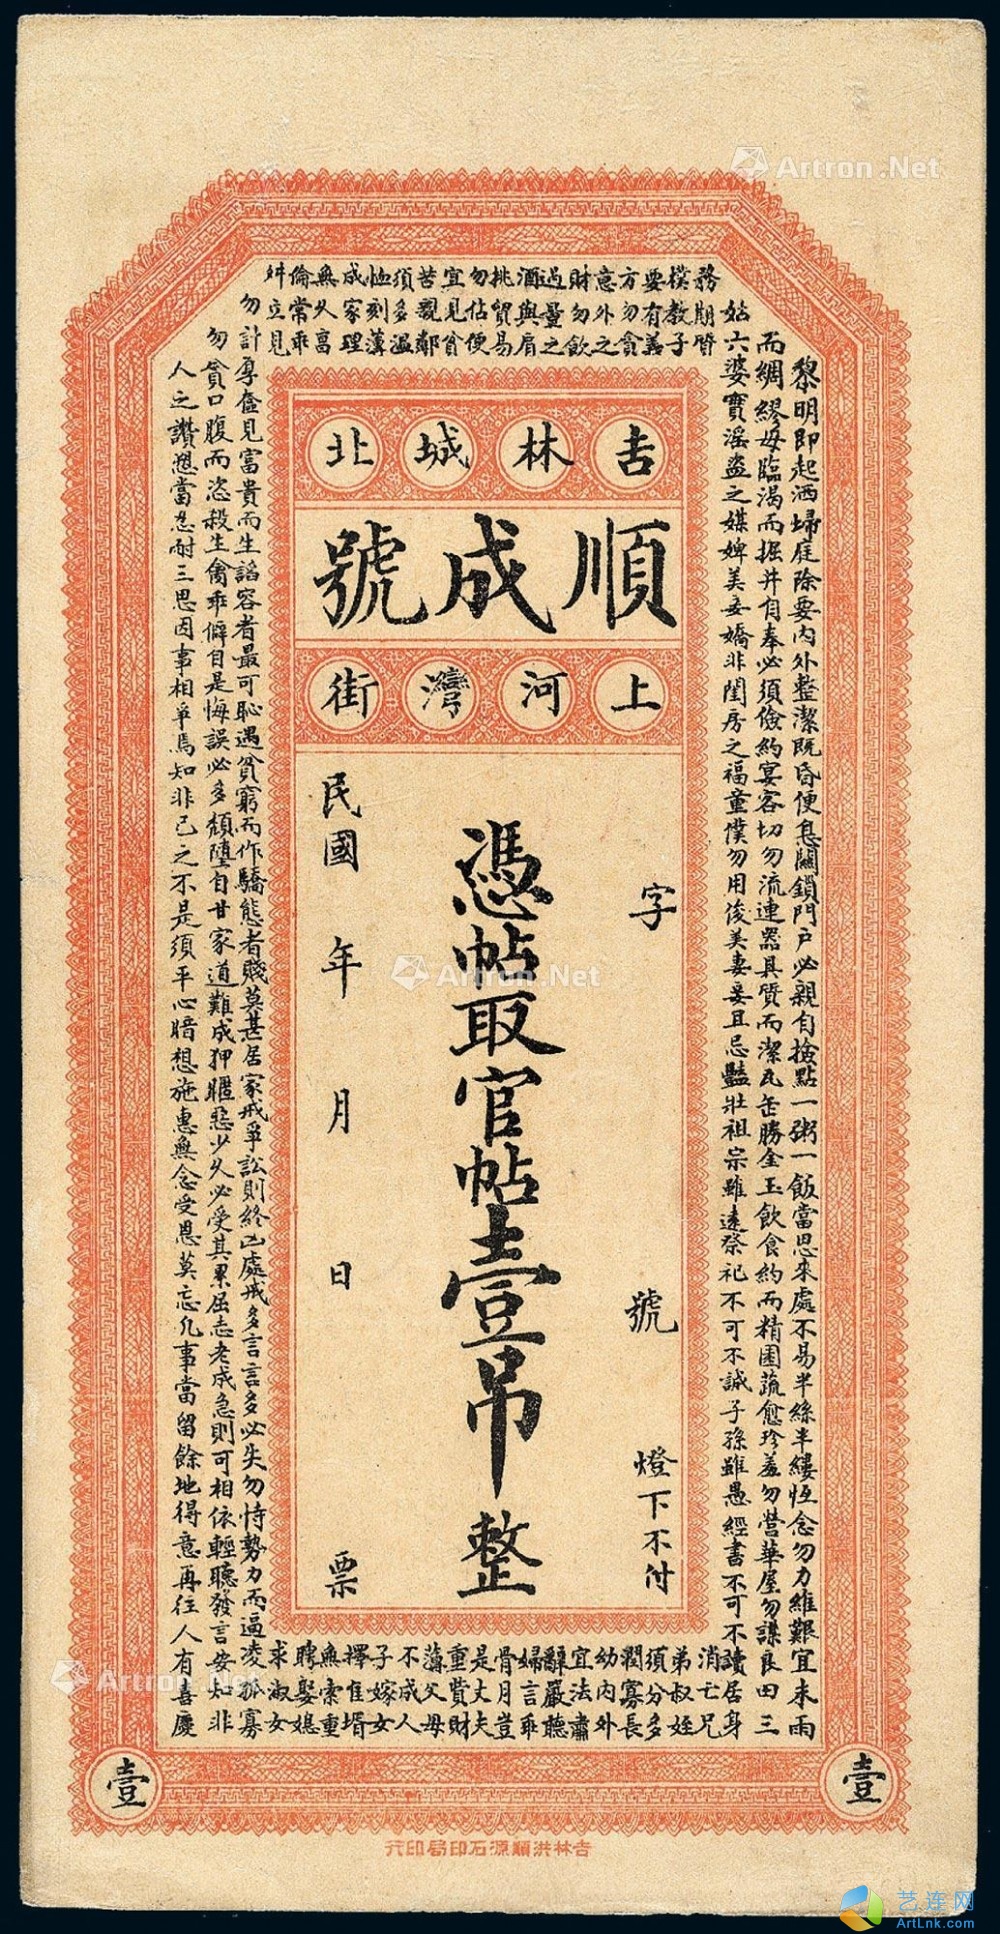 黎明即起洒埽庭除要內外整潔既昏便息關鎖門戶必親自撿點一粥一飯當思來處不易半絲半縷恆念勿力維艱宜未雨
而綢繆毋臨渴而掘井自奉必須儉約宴客切勿流連器具質而潔瓦缶勝金玉飲食約而精園蔬愈珍羞勿營華屋勿謀良田三
姑六婆實淫盜之媒婢美妾嬌非閨房之福童僕勿用俊美妻妾且忌豔壯祖宗雖遠祭祀不可不誠子孫雖愚經書不可不讀居身
務期質
樸教子
要有義
方勿貪
意外之
財勿飲
過量之
酒與肩
挑貿易
勿佔便
宜見貧
苦親鄰
須多溫
恤刻薄
成家理
無久富
倫常乖
舛立見
消亡兄
弟叔姪
須分多
潤寡長
幼內外
宜法肅
辭嚴聽
婦言乖
骨月豈
是丈夫
重貲財
薄父母
不成人
子嫁女
擇佳壻
無索重
聘娶媳
求淑女
勿計厚奩見富貴而生諂容者最可恥遇貧窮而作驕態者賤莫甚居家戒爭訟則終凶處戒多言言多必失勿恃勢力而逼凌孤寡
勿貪口腹而恣殺生禽乖僻自是悔誤必多頹墮自甘家道難成狎暱惡少久必受其累屈志老成急則可相依輕聽發言安知非
人之譖愬當忍耐三思因事相爭焉知非己之不是須平心暗想施惠無念受恩莫忘凡事當留餘地得意再往人有喜慶
吉林城北
順成號
上河灣街
字 號
燈下不付
憑帖取官帖壹吊整
民國 年 月 日 票
壹
壹
吉林洪順源石印局印行
Artron.Net
Artron.Net
Artron.Net
艺连网
ArtLnk.com